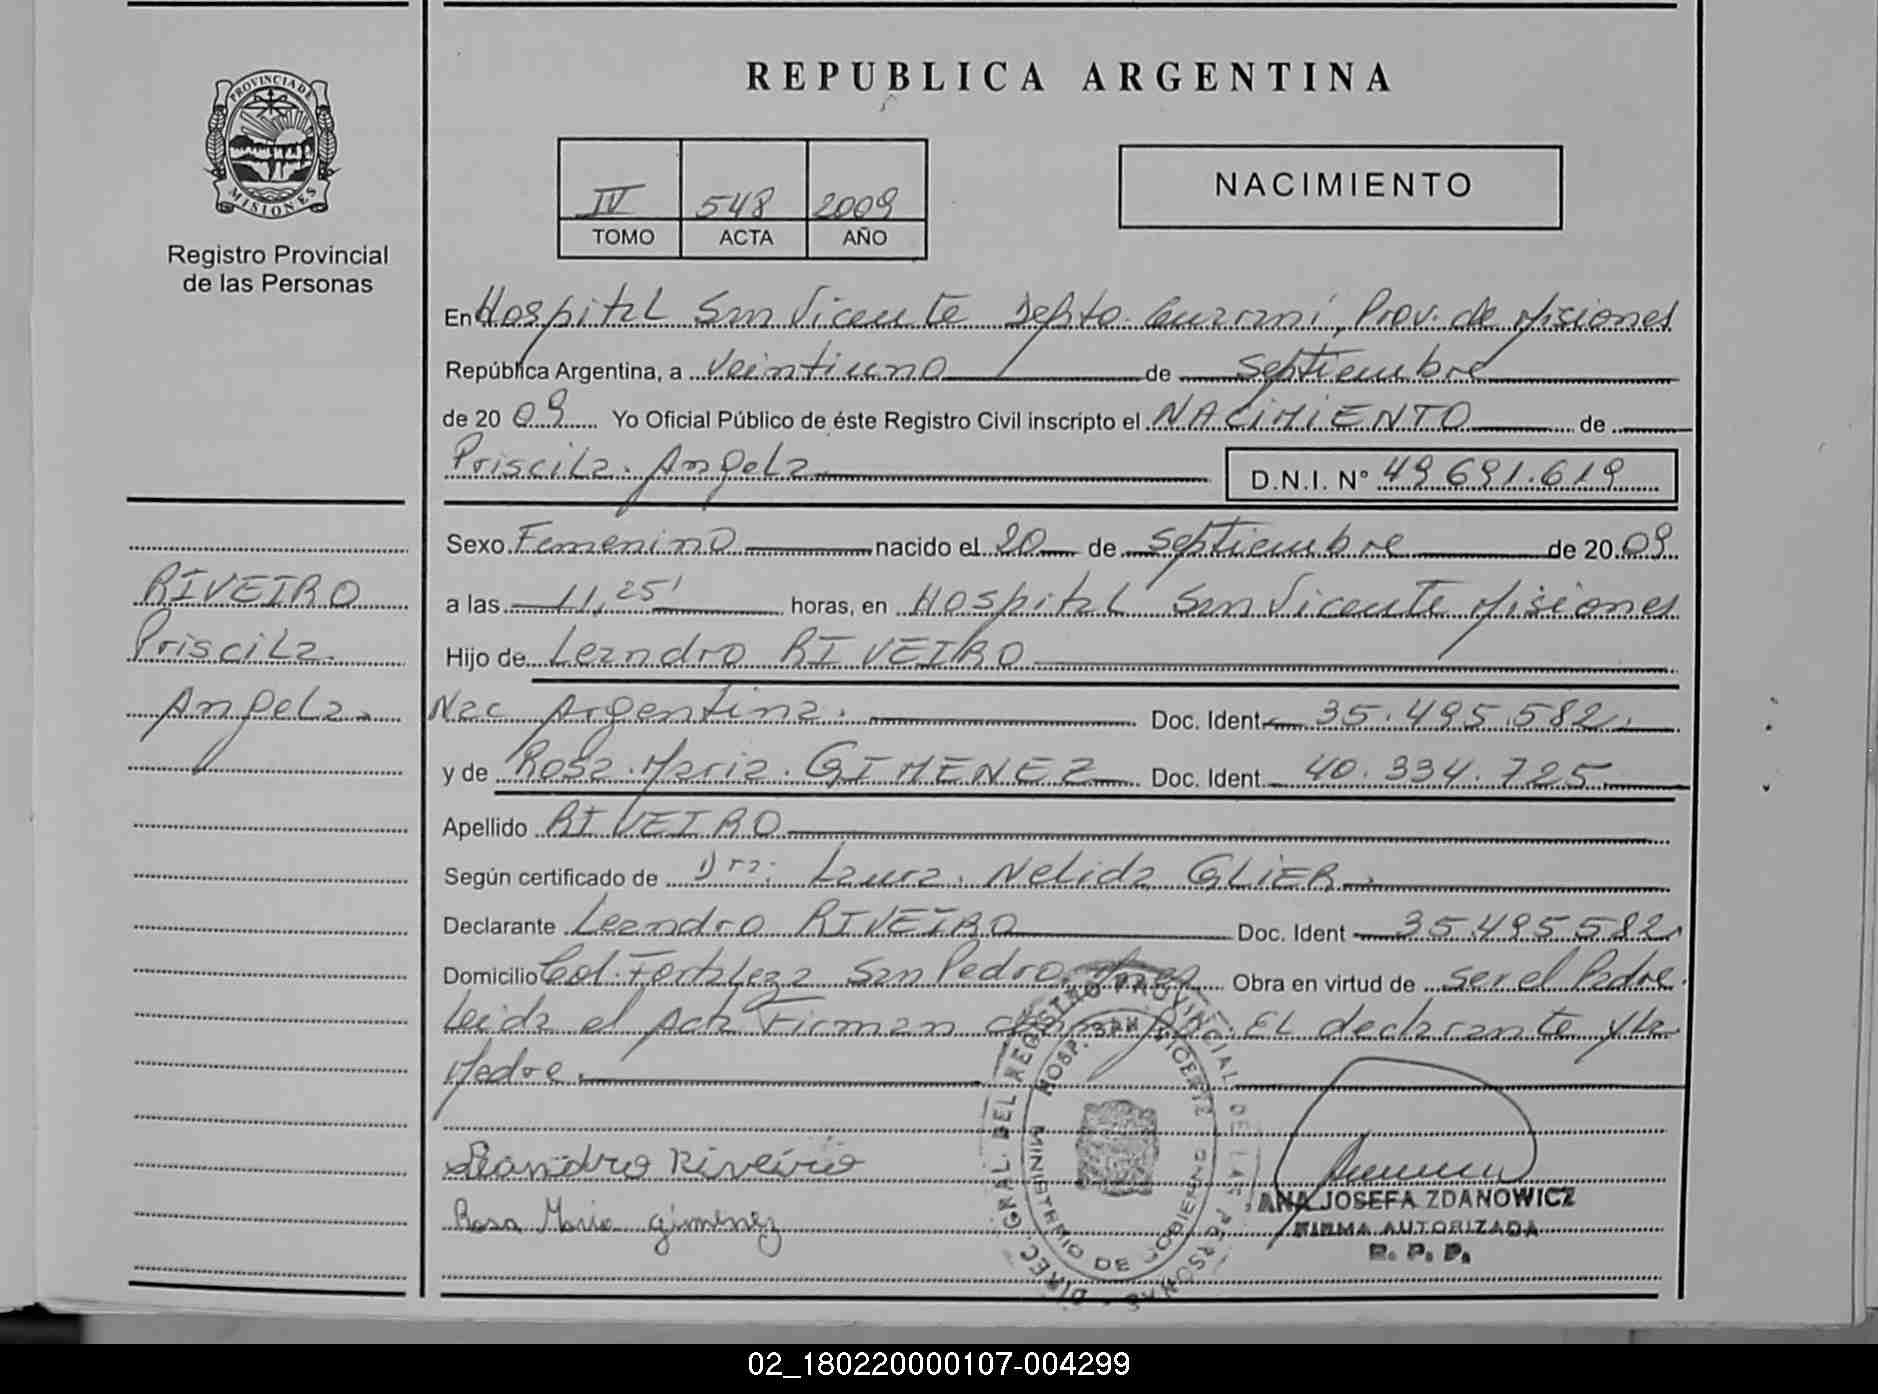 REPUBLICA ARGENTINA
PROVINCIA DE
MISIONES
Registro Provincial
de las Personas
IV 548 2009
TOMO ACTA AÑO
NACIMIENTO
En Hospital San Vicente Depto. Guarani, Prov. de Misiones
República Argentina, a veintiuno de septiembre
de 20 09 Yo Oficial Público de éste Registro Civil inscripto el NACIMIENTO de
Priscila. Angela D.N.I. Nº 49 691.619
Sexo Femenino nacido el 20 de septiembre de 20 09
a las 11,25' horas, en Hospital San Vicente Misiones
Hijo de Leandro RIVEIRO
Nac Argentina. Doc. Ident 35.495.582.
y de Rosa. Maria. GIMENEZ Doc. Ident 40.334.725
Apellido RIVEIRO
Según certificado de Dra: Laura. Nelida GLIER.
Declarante Leandro RIVEIRO Doc. Ident 35.495582
Domicilio Col. Fortaleza San Pedro Obra en virtud de ser el Padre.
Leida el Acta Firman EL declarante y La
Madre.
Leandro Riveiro
Rosa Maria gimenez
RIVEIRO
Priscila.
Angela.
DIREC. GRAL. DEL REGISTRO PROVINCIAL DE LAS PERSONAS
HOSP. SAN VICENTE
MINISTERIO DE GOBIERNO
ANA JOSEFA ZDANOWICZ
FIRMA AUTORIZADA
R. P. P.
02_180220000107-004299